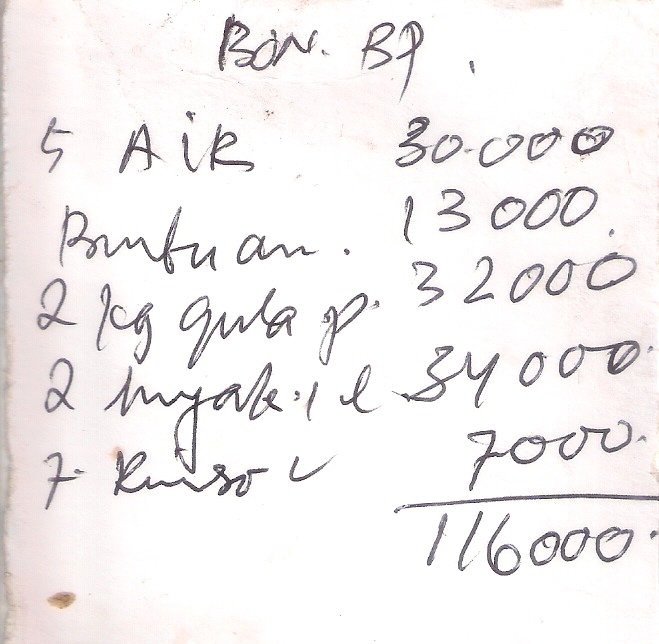 BON. BP.
5 AiR 30.000
Bumbuan. 13000.
2 kg gula p. 32000
2 minyak.1 l. 34000.
7. Rinso ✓ 7000.
116000.